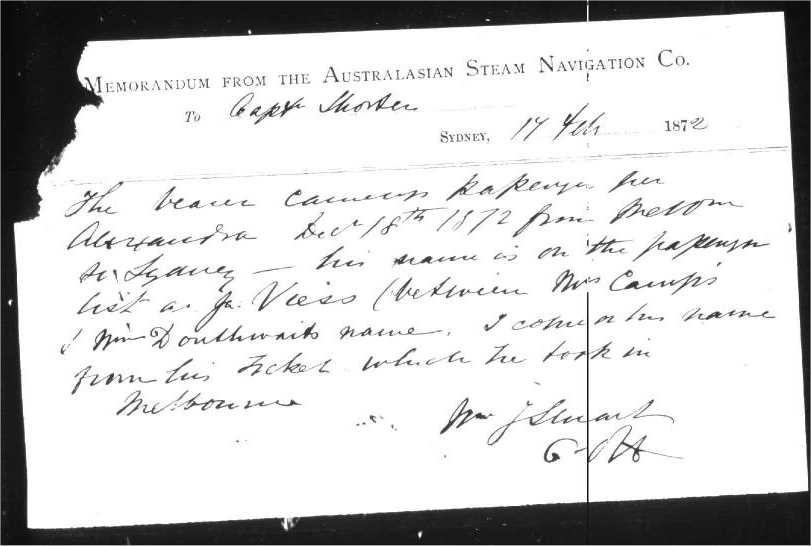 MEMORANDUM FROM THE AUSTRALASIAN STEAM NAVIGATION CO.
To Captn Shorter
SYDNEY, 17 Feb 1872
The bearer came up passenger per
Alexandra Decr 18th 1872 from Melbou
to Sydney — his name is on the passenger
list as Ja. Viess (between Mrs Camps
& Wm Douthwaits name. I come on his name
from his ticket which he took in
Melbourne
Wm J Stuart